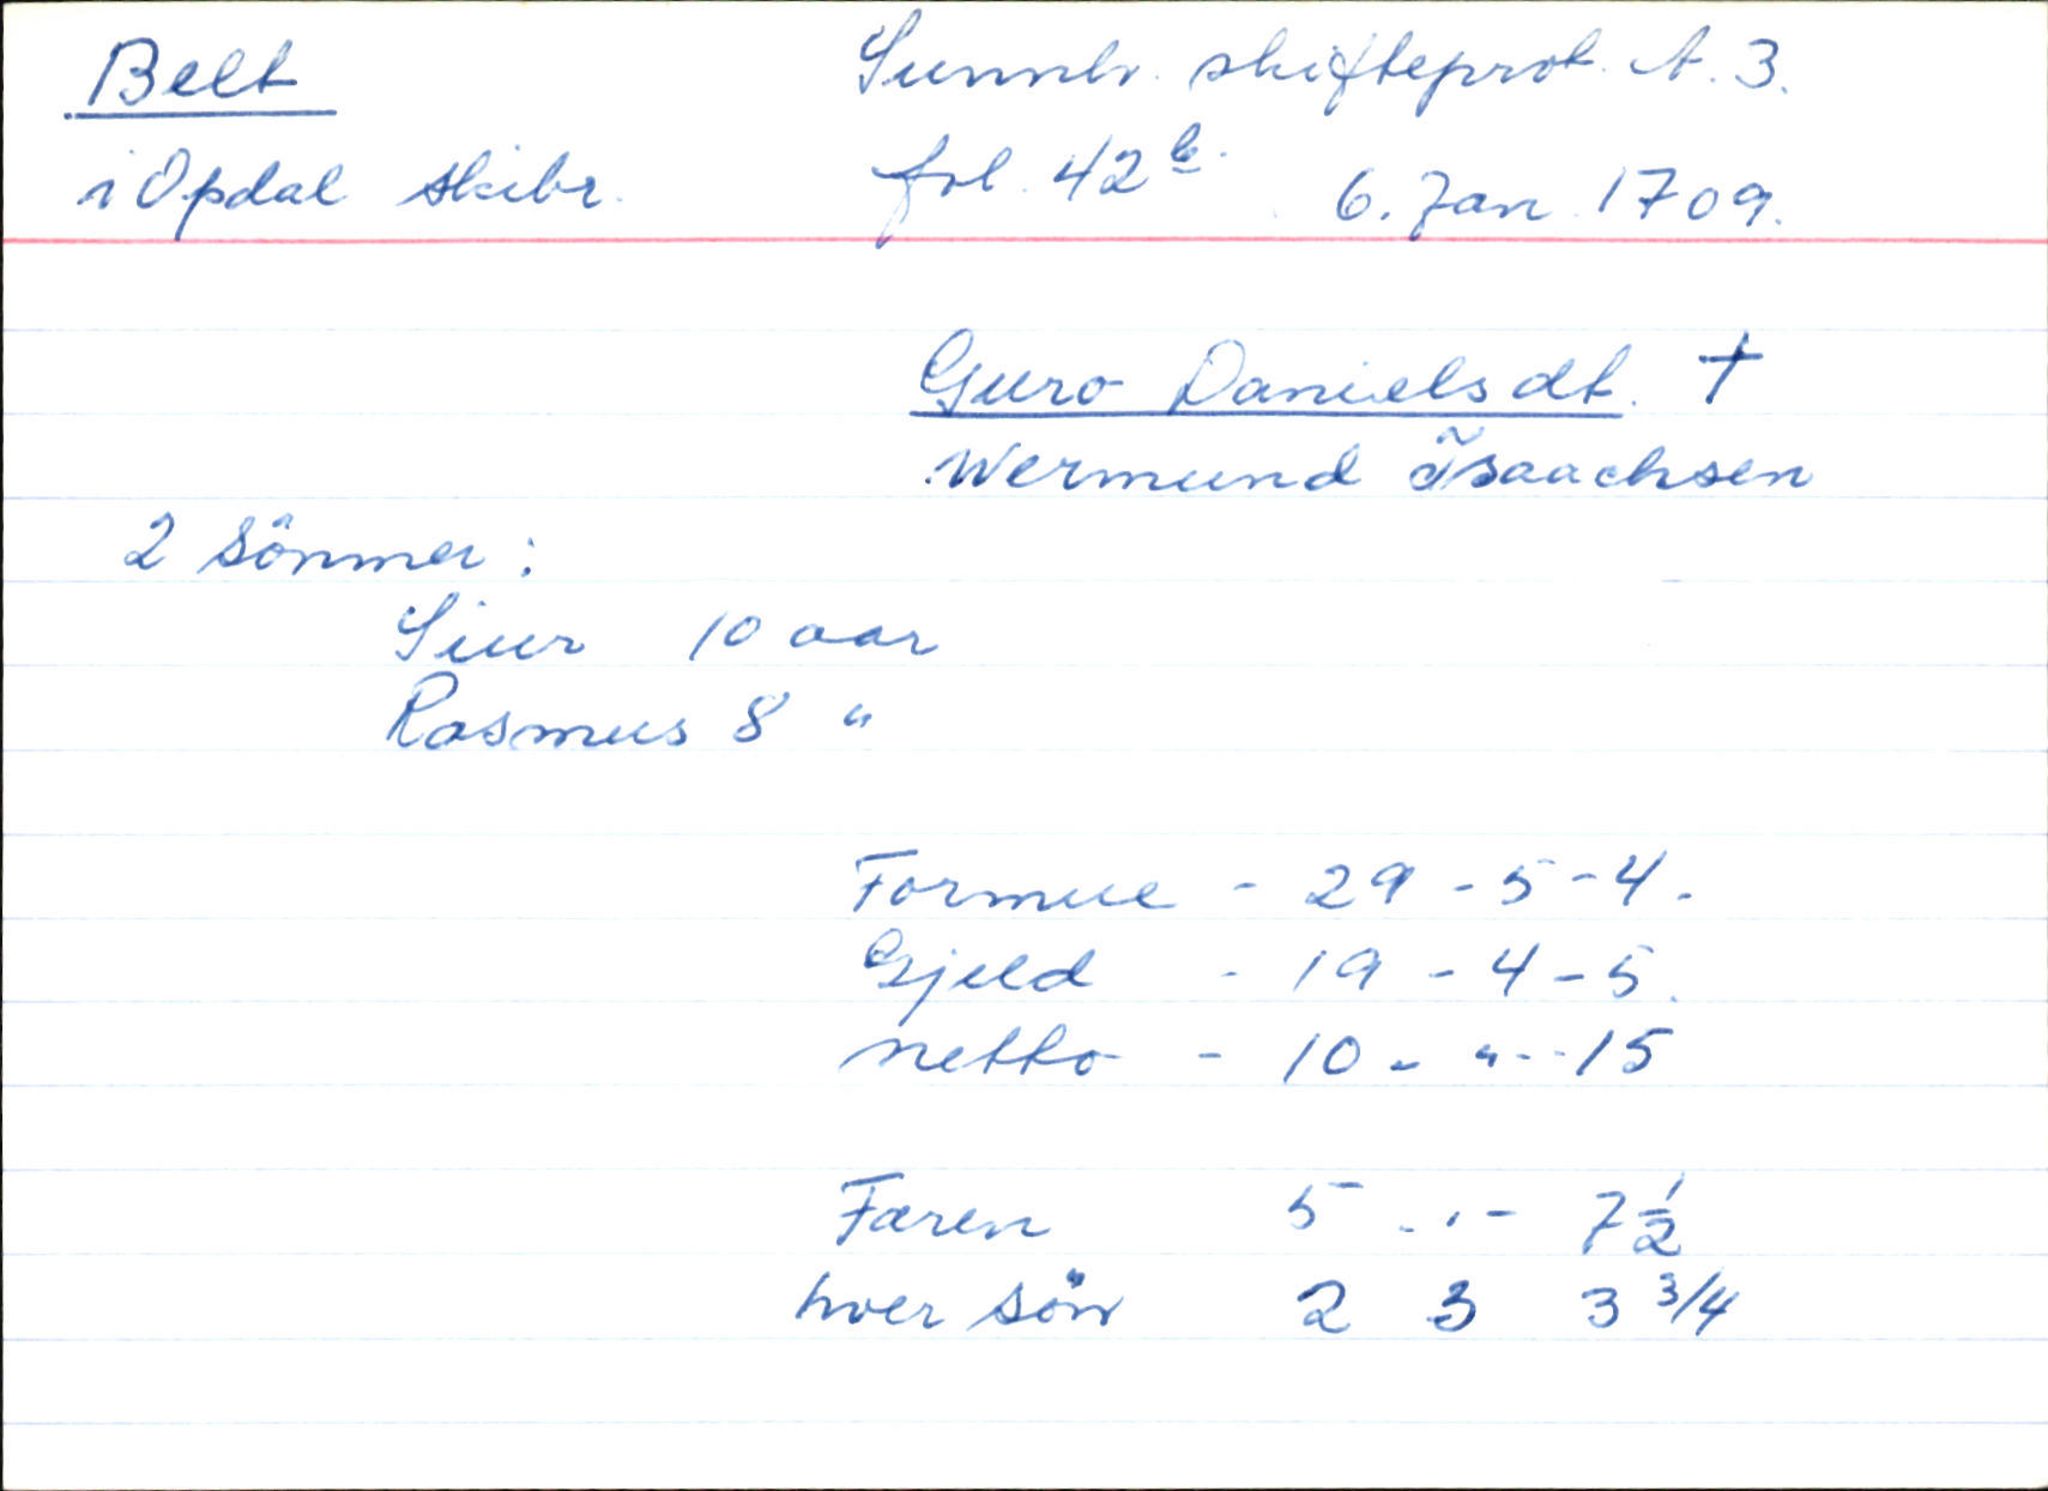 Belt
Sunnh. skifteprot. A. 3.
i Opdal skibr.
fol. 42b.
6. Jan. 1709.
Guro Danielsdt. †
Wermund Isaachsen
2 sönner:
Siur 10 aar
Rasmus 8 "
Formue - 29 - 5 - 4.
Gjeld - 19 - 4 - 5.
netto - 10 - " - 15
Faren 5 - " - 7 1/2
hver sön 2 3 3 3/4